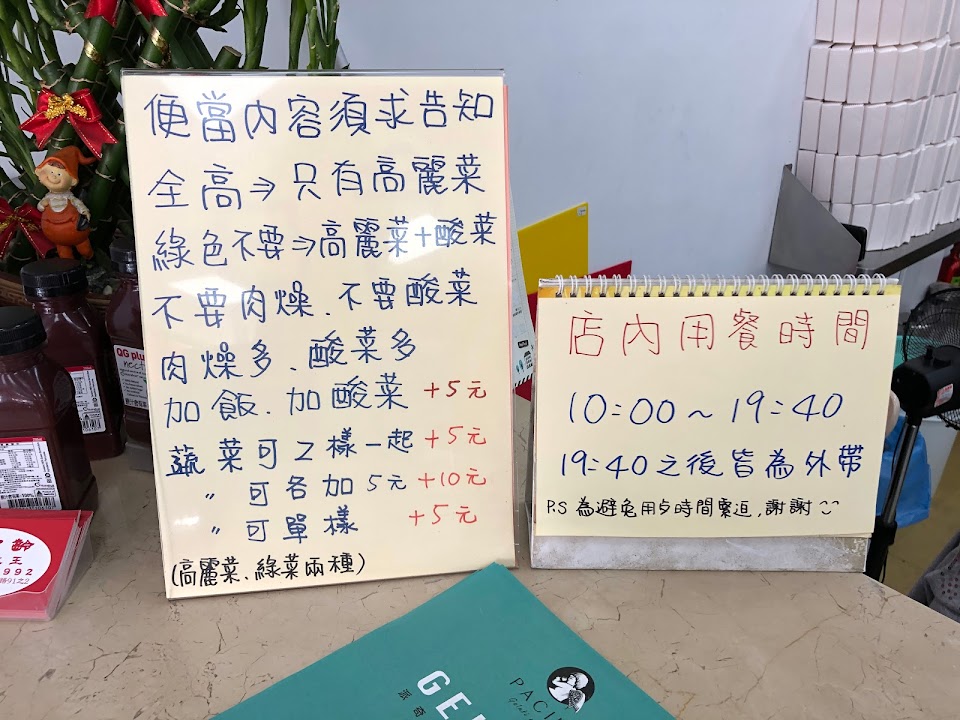 便當內容須求告知
全高⇒只有高麗菜
綠色不要⇒高麗菜+酸菜
不要肉燥、不要酸菜
肉燥多、酸菜多
加飯、加酸菜 +5元
蔬菜可2樣一起 +5元
〃 可各加5元 +10元
〃 可單樣 +5元
(高麗菜、綠菜兩種)
店內用餐時間
10:00~19:40
19:40之後皆為外帶
P.S 為避免用歺時間緊迫,謝謝
QG plu
992
路91之2
PACI
GE